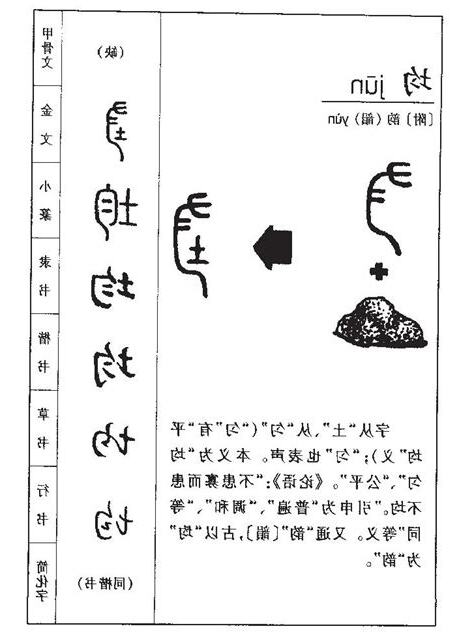 均 jūn
〔附〕韵(韻) yùn
字从“土”、从“匀”(“匀”有“平
均”义);“匀”也表声。本义为“均
匀”、“公平”。《论语》:“不患寡而患
不均。”引申为“普遍”、“调和”、“等
同”等义。又通“韵”〔韻〕,古以“均”
为“韵”。
甲骨文 (缺)
金文 均
小篆 均
隶书 均
楷书 均
草书 均
行书 均
简化字 (同楷书)